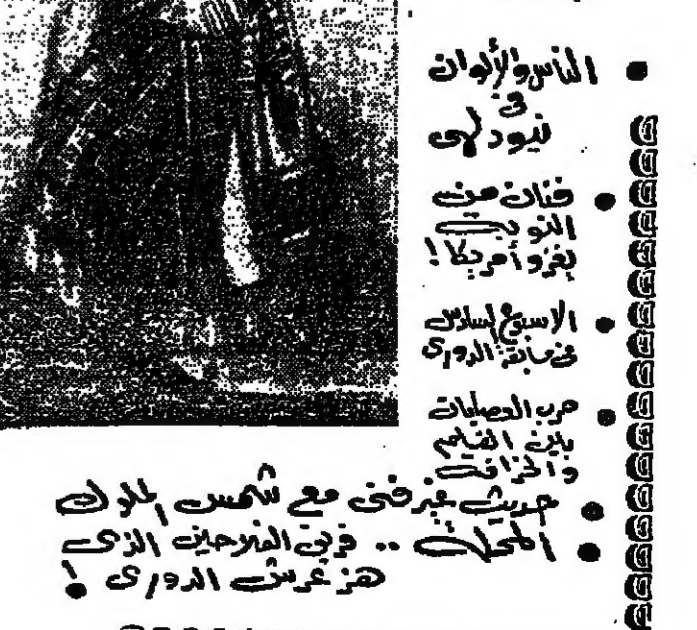 • الناس والألوان
فى
نيودلهى
• فنان من
النوبة
يغزو أمريكا !
• الاسبوع السادس
فى مسابقة الدورى
• حرب العصابات
بين الفيلم
والخرافة
• حديث غير فنى مع شمس الملوك
• المحلة .. فريق الفلاحين الذى
هز عرش الدورى !